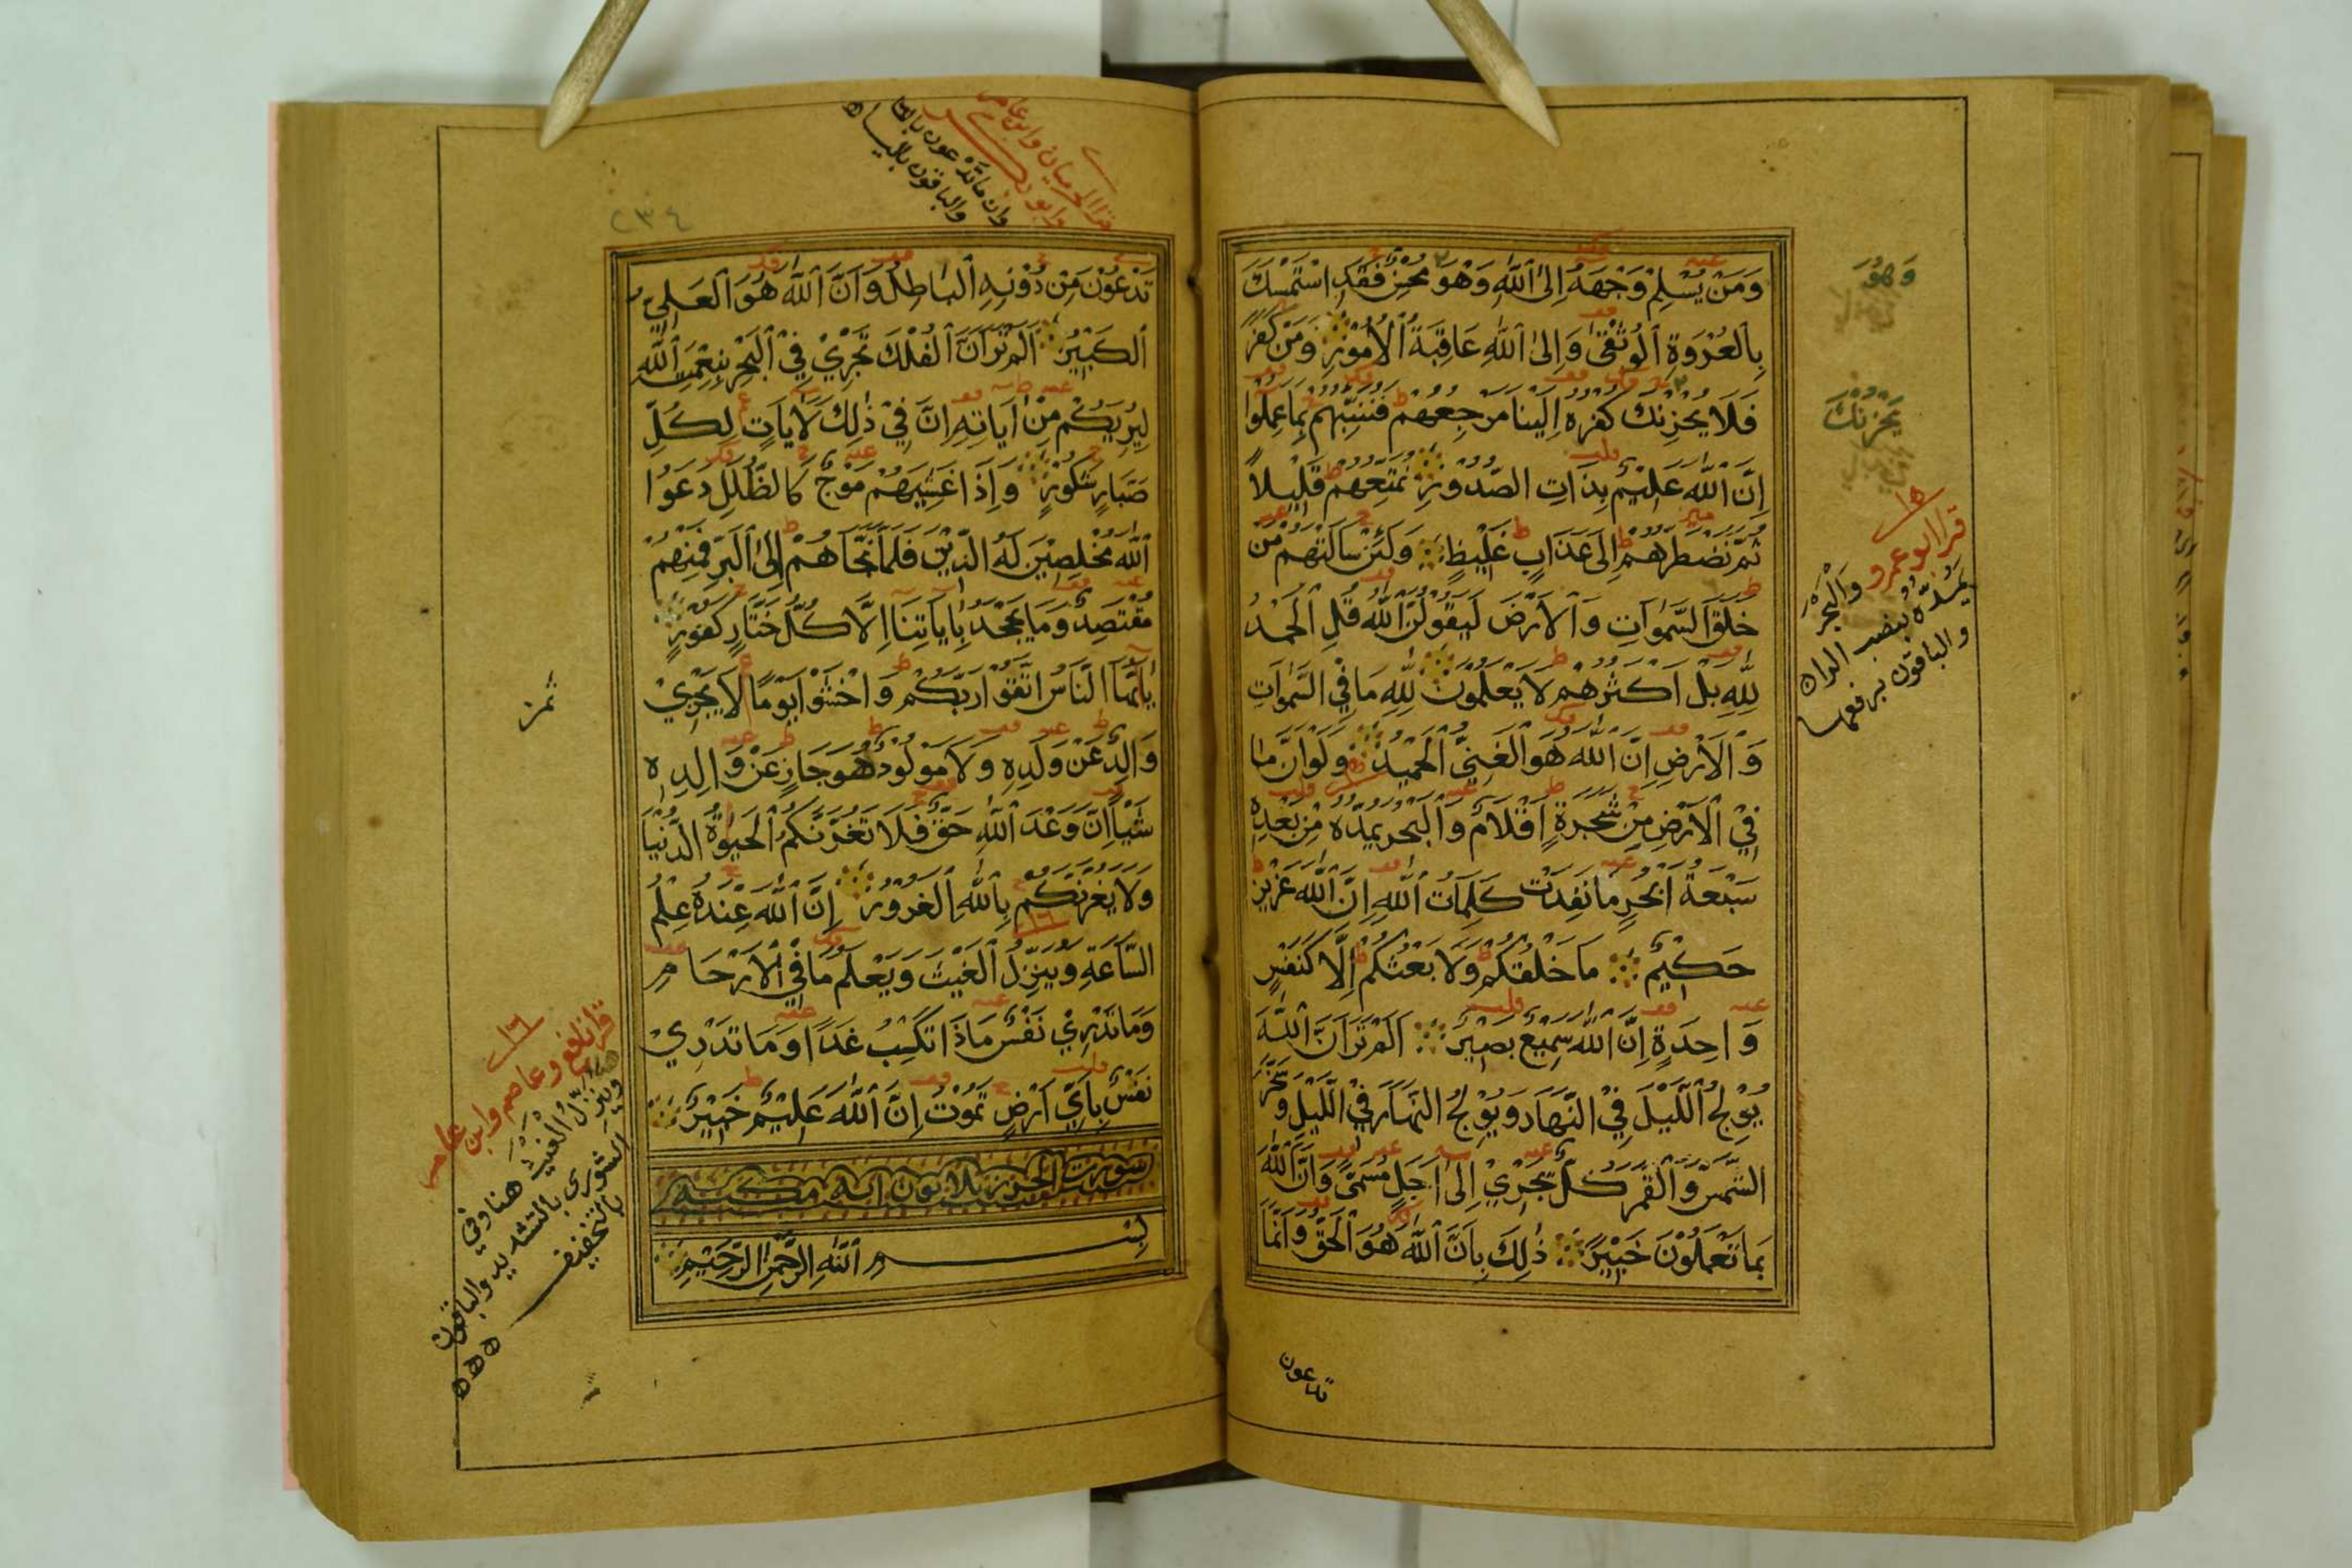 وَمَنْ يُسْلِمْ وَجْهَهُ إِلَى ٱللَّهِ وَهْوَ مُحْسِنٌ فَقَدِ اسْتَمْسَكَ
بِالْعُرْوَةِ ٱلْوُثْقَىٰ وَإِلَى ٱللَّهِ عَاقِبَةُ ٱلْأُمُوْرِ وَمَنْ كَفَرَ
فَلَا يُحْزِنْكَ كُفْرُهُ إِلَيْنَا مَرْجِعُهُمْ فَنُنَبِّئُهُمْ بِمَا عَمِلُوْا
إِنَّ ٱللَّهَ عَلِيْمٌ بِذَاتِ الصُّدُوْرِ نُمَتِّعُهُمْ قَلِيْلًا
ثُمَّ نَضْطَرُّهُمْ إِلَى عَذَابٍ غَلِيْظٍ وَلَئِنْ سَأَلْتَهُمْ مَنْ
خَلَقَ السَّمٰوَاتِ وَٱلْأَرْضَ لَيَقُوْلُنَّ ٱللَّهُ قُلِ ٱلْحَمْدُ
لِلَّهِ بَلْ أَكْثَرُهُمْ لَا يَعْلَمُوْنَ لِلَّهِ مَا فِي السَّمٰوَاتِ
وَٱلْأَرْضِ إِنَّ ٱللَّهَ هُوَ ٱلْغَنِيُّ ٱلْحَمِيْدُ وَلَوْ أَنَّ مَا
فِي ٱلْأَرْضِ مِنْ شَجَرَةٍ أَقْلَامٌ وَٱلْبَحْرُ يَمُدُّهُ مِنْ بَعْدِهِ
سَبْعَةُ أَبْحُرٍ مَا نَفِدَتْ كَلِمَاتُ ٱللَّهِ إِنَّ ٱللَّهَ عَزِيْزٌ
حَكِيْمٌ مَا خَلْقُكُمْ وَلَا بَعْثُكُمْ إِلَّا كَنَفْسٍ
وَاحِدَةٍ إِنَّ ٱللَّهَ سَمِيْعٌ بَصِيْرٌ أَلَمْ تَرَ أَنَّ ٱللَّهَ
يُوْلِجُ ٱللَّيْلَ فِيْ النَّهَارِ وَيُوْلِجُ النَّهَارَ فِيْ اللَّيْلِ وَسَخَّرَ
الشَّمْسَ وَٱلْقَمَرَ كُلٌّ يَجْرِيْ إِلَىٰ أَجَلٍ مُسَمًّى وَأَنَّ ٱللَّهَ
بِمَا تَعْمَلُوْنَ خَبِيْرٌ ذٰلِكَ بِأَنَّ ٱللَّهَ هُوَ ٱلْحَقُّ وَأَنَّمَا
تدعون
وَهُوَ
يَحْزُنْكَ
١٥
قرا ابو عمرو وَالْبَحْرَ
يَمُدُّهُ بنصب الراء
والباقون برفعها
تَدْعُوْنَ مِنْ دُوْنِهِ ٱلْبَاطِلُ وَأَنَّ ٱللَّهَ هُوَ ٱلْعَلِيُّ
ٱلْكَبِيْرُ أَلَمْ تَرَ أَنَّ ٱلْفُلْكَ تَجْرِيْ فِيْ ٱلْبَحْرِ بِنِعْمَتِ ٱللَّهِ
لِيُرِيَكُمْ مِنْ آيَاتِهِ إِنَّ فِيْ ذٰلِكَ لَآيَاتٍ لِكُلِّ
صَبَّارٍ شَكُوْرٍ وَإِذَا غَشِيَهُمْ مَوْجٌ كَالظُّلَلِ دَعَوُا
ٱللَّهَ مُخْلِصِيْنَ لَهُ الدِّيْنَ فَلَمَّا نَجَّاهُمْ إِلَى ٱلْبَرِّ فَمِنْهُمْ
مُقْتَصِدٌ وَمَا يَجْحَدُ بِآيَاتِنَا إِلَّا كُلُّ خَتَّارٍ كَفُوْرٍ
يَا أَيُّهَا النَّاسُ اتَّقُوْا رَبَّكُمْ وَاخْشَوْا يَوْمًا لَا يَجْزِيْ
وَالِدٌ عَنْ وَلَدِهِ وَلَا مَوْلُوْدٌ هُوَ جَازٍ عَنْ وَالِدِهِ
شَيْئًا إِنَّ وَعْدَ ٱللَّهِ حَقٌّ فَلَا تَغُرَّنَّكُمُ ٱلْحَيٰوةُ الدُّنْيَا
وَلَا يَغُرَّنَّكُمْ بِٱللَّهِ ٱلْغَرُوْرُ إِنَّ ٱللَّهَ عِنْدَهُ عِلْمُ
السَّاعَةِ وَيُنَزِّلُ ٱلْغَيْثَ وَيَعْلَمُ مَا فِي ٱلْأَرْحَامِ
وَمَا تَدْرِيْ نَفْسٌ مَاذَا تَكْسِبُ غَدًا وَمَا تَدْرِيْ
نَفْسٌ بِأَيِّ أَرْضٍ تَمُوْتُ إِنَّ ٱللَّهَ عَلِيْمٌ خَبِيْرٌ
سورت الحرز ثلاثون ايه مكيه
بِسْمِ ٱللَّهِ الرَّحْمٰنِ الرَّحِيْمِ
٢٣٤
قرا الحرميان وابن عامر
وابو بكر
وان ما تدعون بالتاء
والباقون بالياء
ثمن
١٦
قرا نافع وعاصم وابن عامر
وينزل الغيث هنا وفي
الشورى بالتشديد والباقون
بالتخفيف